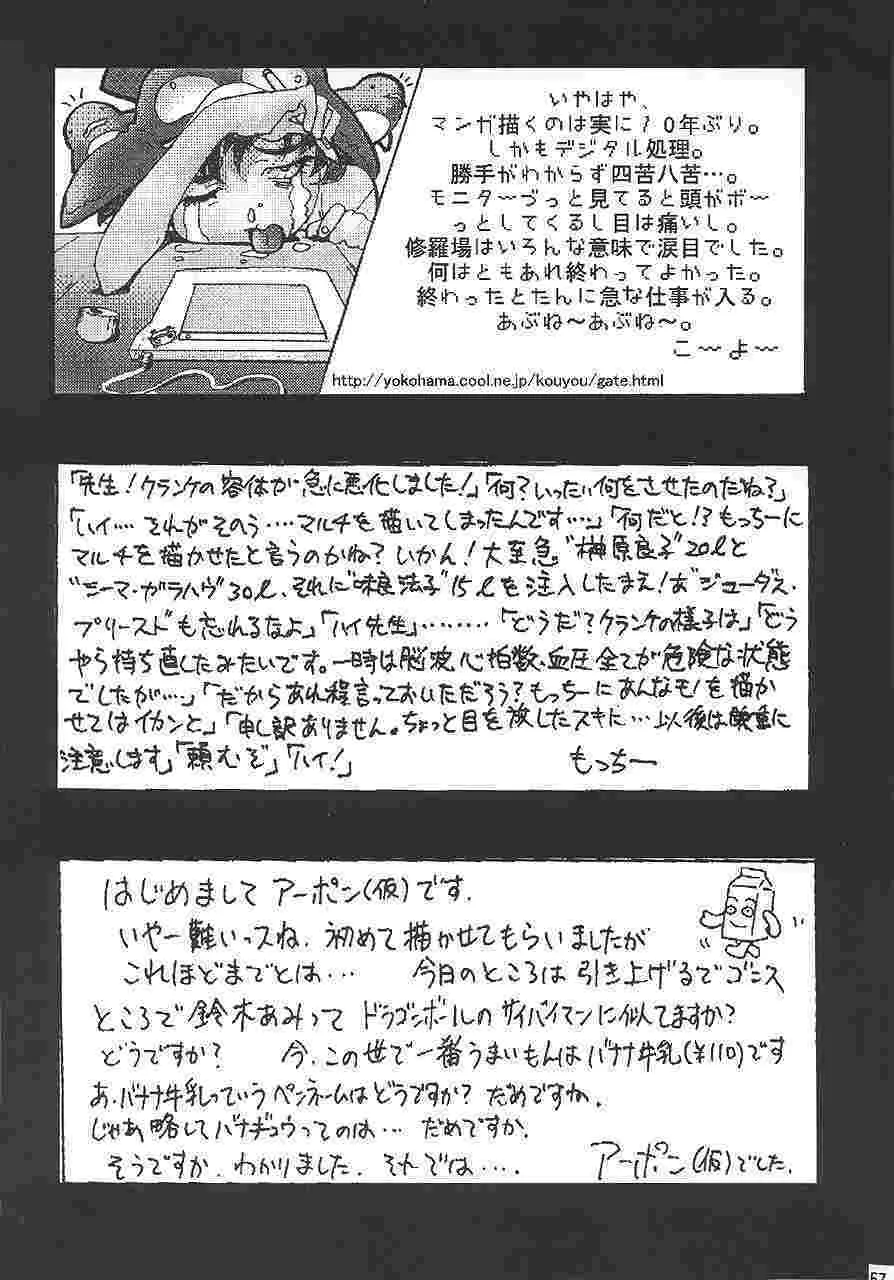 いやはや、
マンガ描くのは実に10年ぶり。
しかもデジタル処理。
勝手がわからず四苦八苦…。
モニターづっと見てると頭がボ〜
っとしてくるし目は痛いし。
修羅場はいろんな意味で涙目でした。
何はともあれ終わってよかった。
終わったとたんに急な仕事が入る。
あぶね〜あぶね〜。
こ〜よ〜
http://yokohama.cool.ne.jp/kouyou/gate.html
「先生!クランケの容体が急に悪化しました!」「何?いったい何をさせたのだね?」
「ハイ…‥それがそのう‥‥マルチを描いてしまったんです…‥」「何だと!?もっちーに
マルチを描かせたと言うのかね?いかん!大至急〝榊原良子〟20ℓと
〝ニーマ・ガラハヴ〟30ℓ、それに〝味良法子〟15ℓを注入したまえ!あ〝ジューダス・
プリースト〟も忘れるなよ」「ハイ先生」………「どうだ?クランケの様子は」「どう
やら持ち直したみたいです。一時は脳波、心拍数、血圧全てが危険な状態
でしたが…‥」「だからあれ程言っておいただろう?もっちーにあんなモノを描か
せてはイカンと」「申し訳ありません。ちょっと目を放したスキに…以後は慎重に
注意します」「頼むぞ」「ハイ!」
もっちー
はじめまして アーポン(仮)です.
いやー難いっスね. 初めて描かせてもらいましたが
これほどまでとは… 今日のところは引き上げるでゴンス
ところで鈴木あみって ドラゴンボールのサイバイマンに似てますか?
どうですか? 今、この世で一番うまいもんはバナナ牛乳(¥110)です
あ、バナナ牛乳っていうペンネームはどうですか? だめですね.
じゃあ略してバナギュウってのは… だめですか.
そうですか. わかりました. それでは….
アーポン(仮)でした.
67